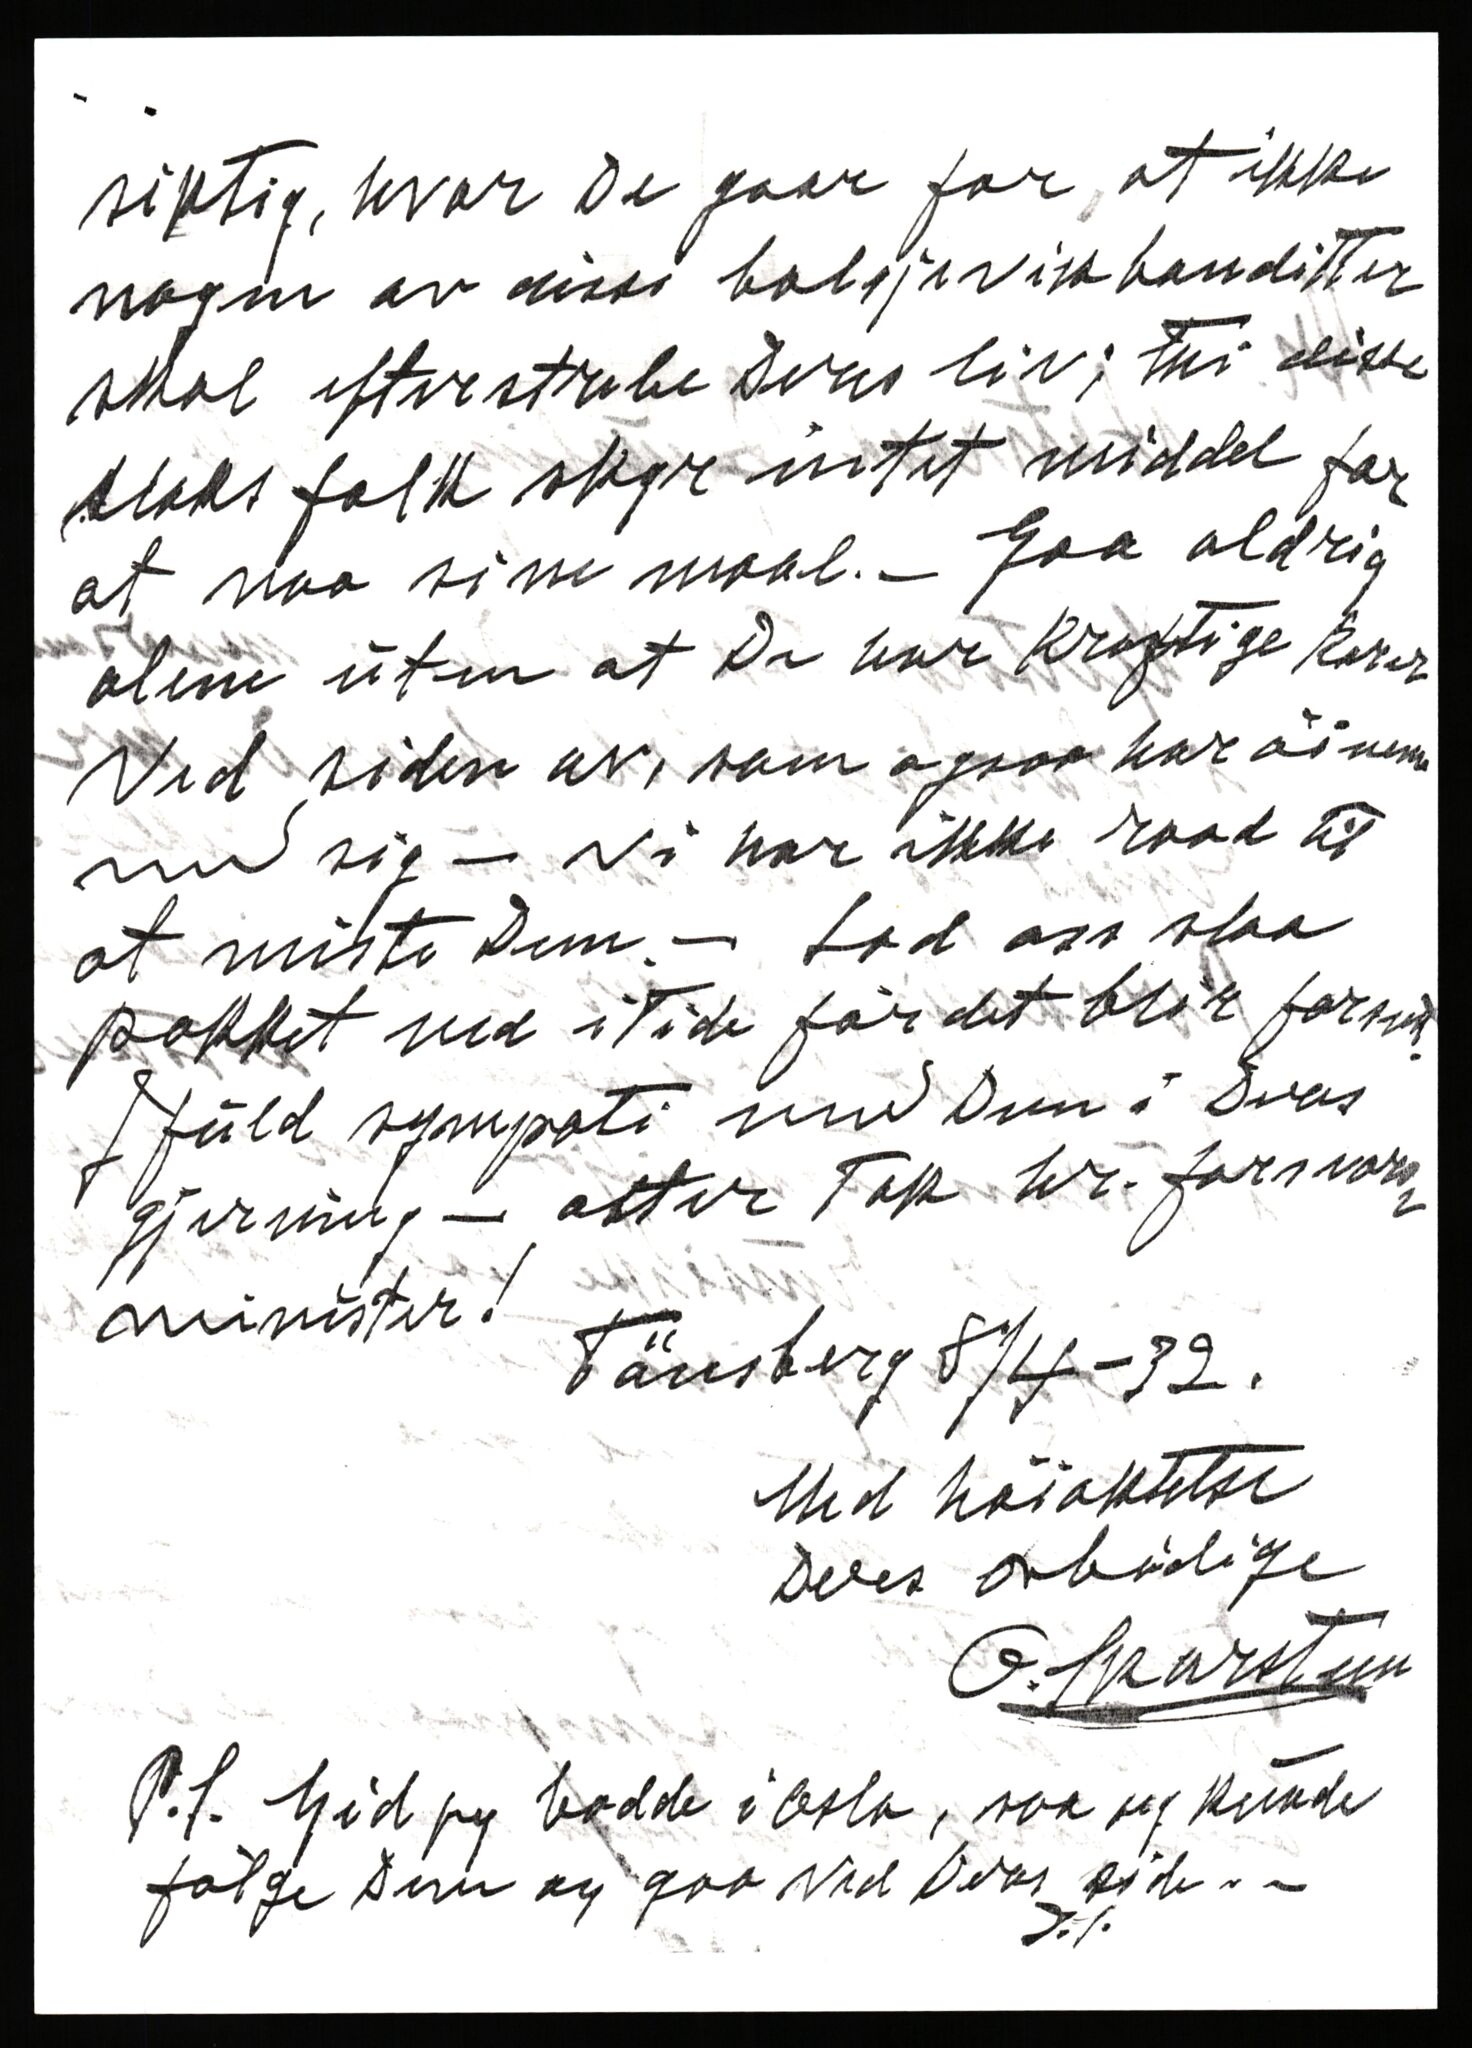 siktig, hvor De gaar for, at ikke
nogen av disse bolsjevikbanditter
skal efterstræbe Deres liv; thi disse
slaks folk skyr intet middel for
at naa sine maal. — Gaa aldrig
alene uten at De har kraftige karer
ved siden av, som ogsaa har öinene
med sig — Vi har ikke raad til
at miste Dem. — Lad oss slaa
pakket ned i Tide för det blir forsent.
I fuld sympati med Dem i Deres
gjerning — atter Tak hr. forsvars-
minister!
Tönsberg 8/4-32.
Med höiaktelse
Deres ærbödige
O. Skarsteen
P.S. Gid jeg bodde i Oslo, saa jeg kunde
fölge Dem og gaa ved Deres side. -